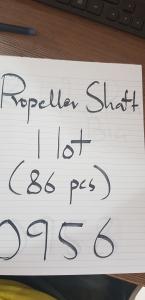 Propeller Shaft
1 lot
(86 pcs)
0956